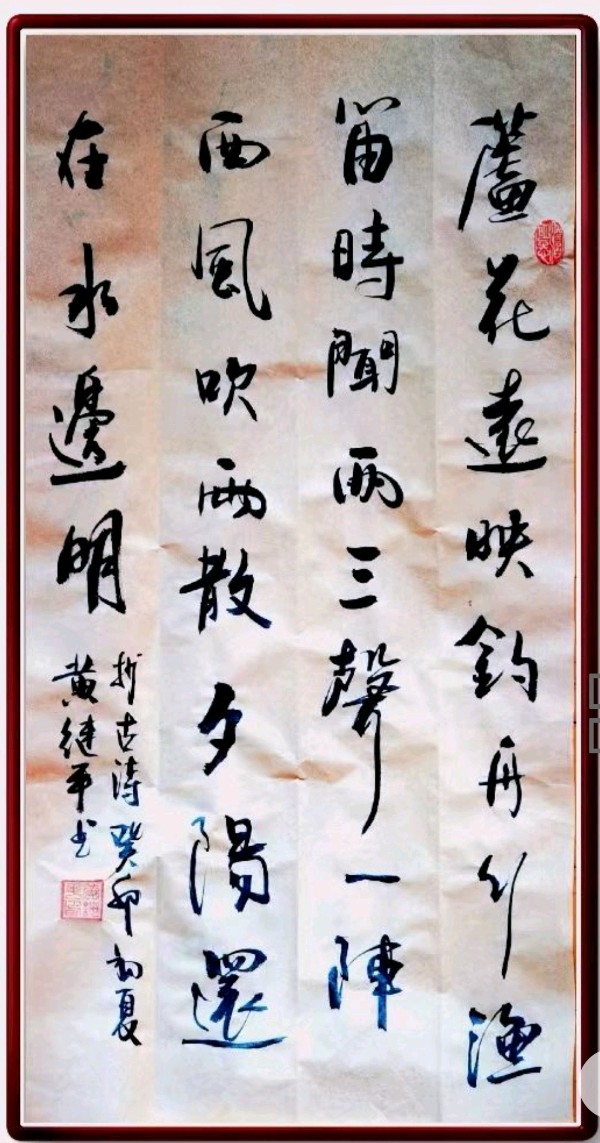 蘆花遠映釣舟行漁
笛時聞兩三聲一陣
西風吹雨散夕陽還
在水邊明
抄古詩癸卯初夏
黄継平书